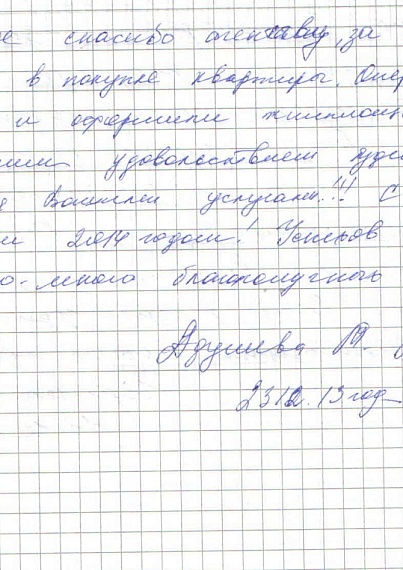 е спасибо агенству, за
в покупке квартиры. Опер
и оформили жилплощ
шим удоволствием буде
я Вашими услугами..!!! С
м 2014 годом! Успехов
о-много благополучного
Адушева М.
2312.13 год